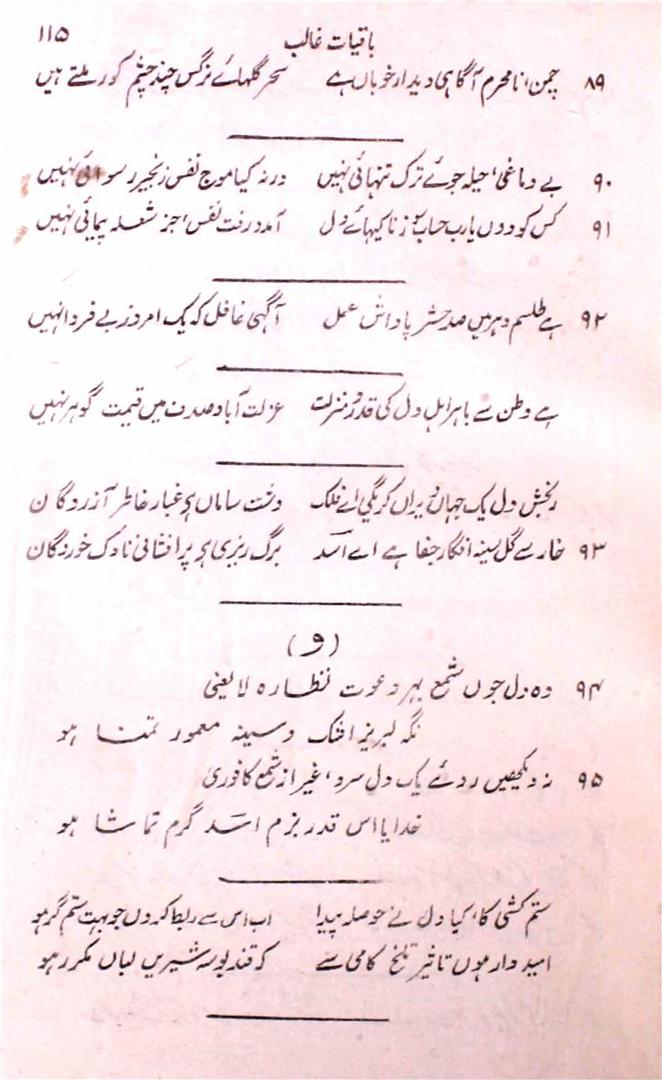 باقیات غالب
۱۱۵
۸۹ چمن، نامحرم آگاہی دیدار خوباں ہے سحر گلہائے نرگس چند چشم کور ملتے ہیں
۹۰ بے دماغی، حیلہ جوئے ترک تنہائی نہیں ورنہ کیا موج نفس زنجیر رسوائی نہیں
۹۱ کس کو دوں یارب حساب سوز ناکیہائے دل آمد و رفت نفس، جز شعلہ پیمائی نہیں
۹۲ ہے طلسم دہر میں صد حشر پاداش عمل آگہی غافل کہ یک امروز بے فردا نہیں
ہے وطن سے باہر اہل دل کی قدر و منزلت عزلت آباد صدف میں قیمت گوہر نہیں
رنجش دل یک جہاں ویراں کرے گی اے فلک دشت ساماں ہے غبار خاطر آزردگاں
۹۳ خار سے گل سینہ افگار جفا ہے اے اسد برگ ریزی ہے پر افشانی ناوک خوردگاں
(و)
۹۴ وہ دل جوں شمع بہر دعوت نظارہ لا یعنی
نگہ لبریز اشک و سینہ معمور تمنا ہو
۹۵ نہ دیکھیں روئے یک دل سرد، غیر از شمع کافوری
خدایا اس قدر بزم اسد گرم تماشا ہو
ستم کشی کا، کیا دل نے حوصلہ پیدا اب اس سے ربط کروں جو بہت ستم گر ہو
امیدوار ہوں تاثیر تلخ کامی سے کہ قند بوسہ شیریں لباں مکرر ہو